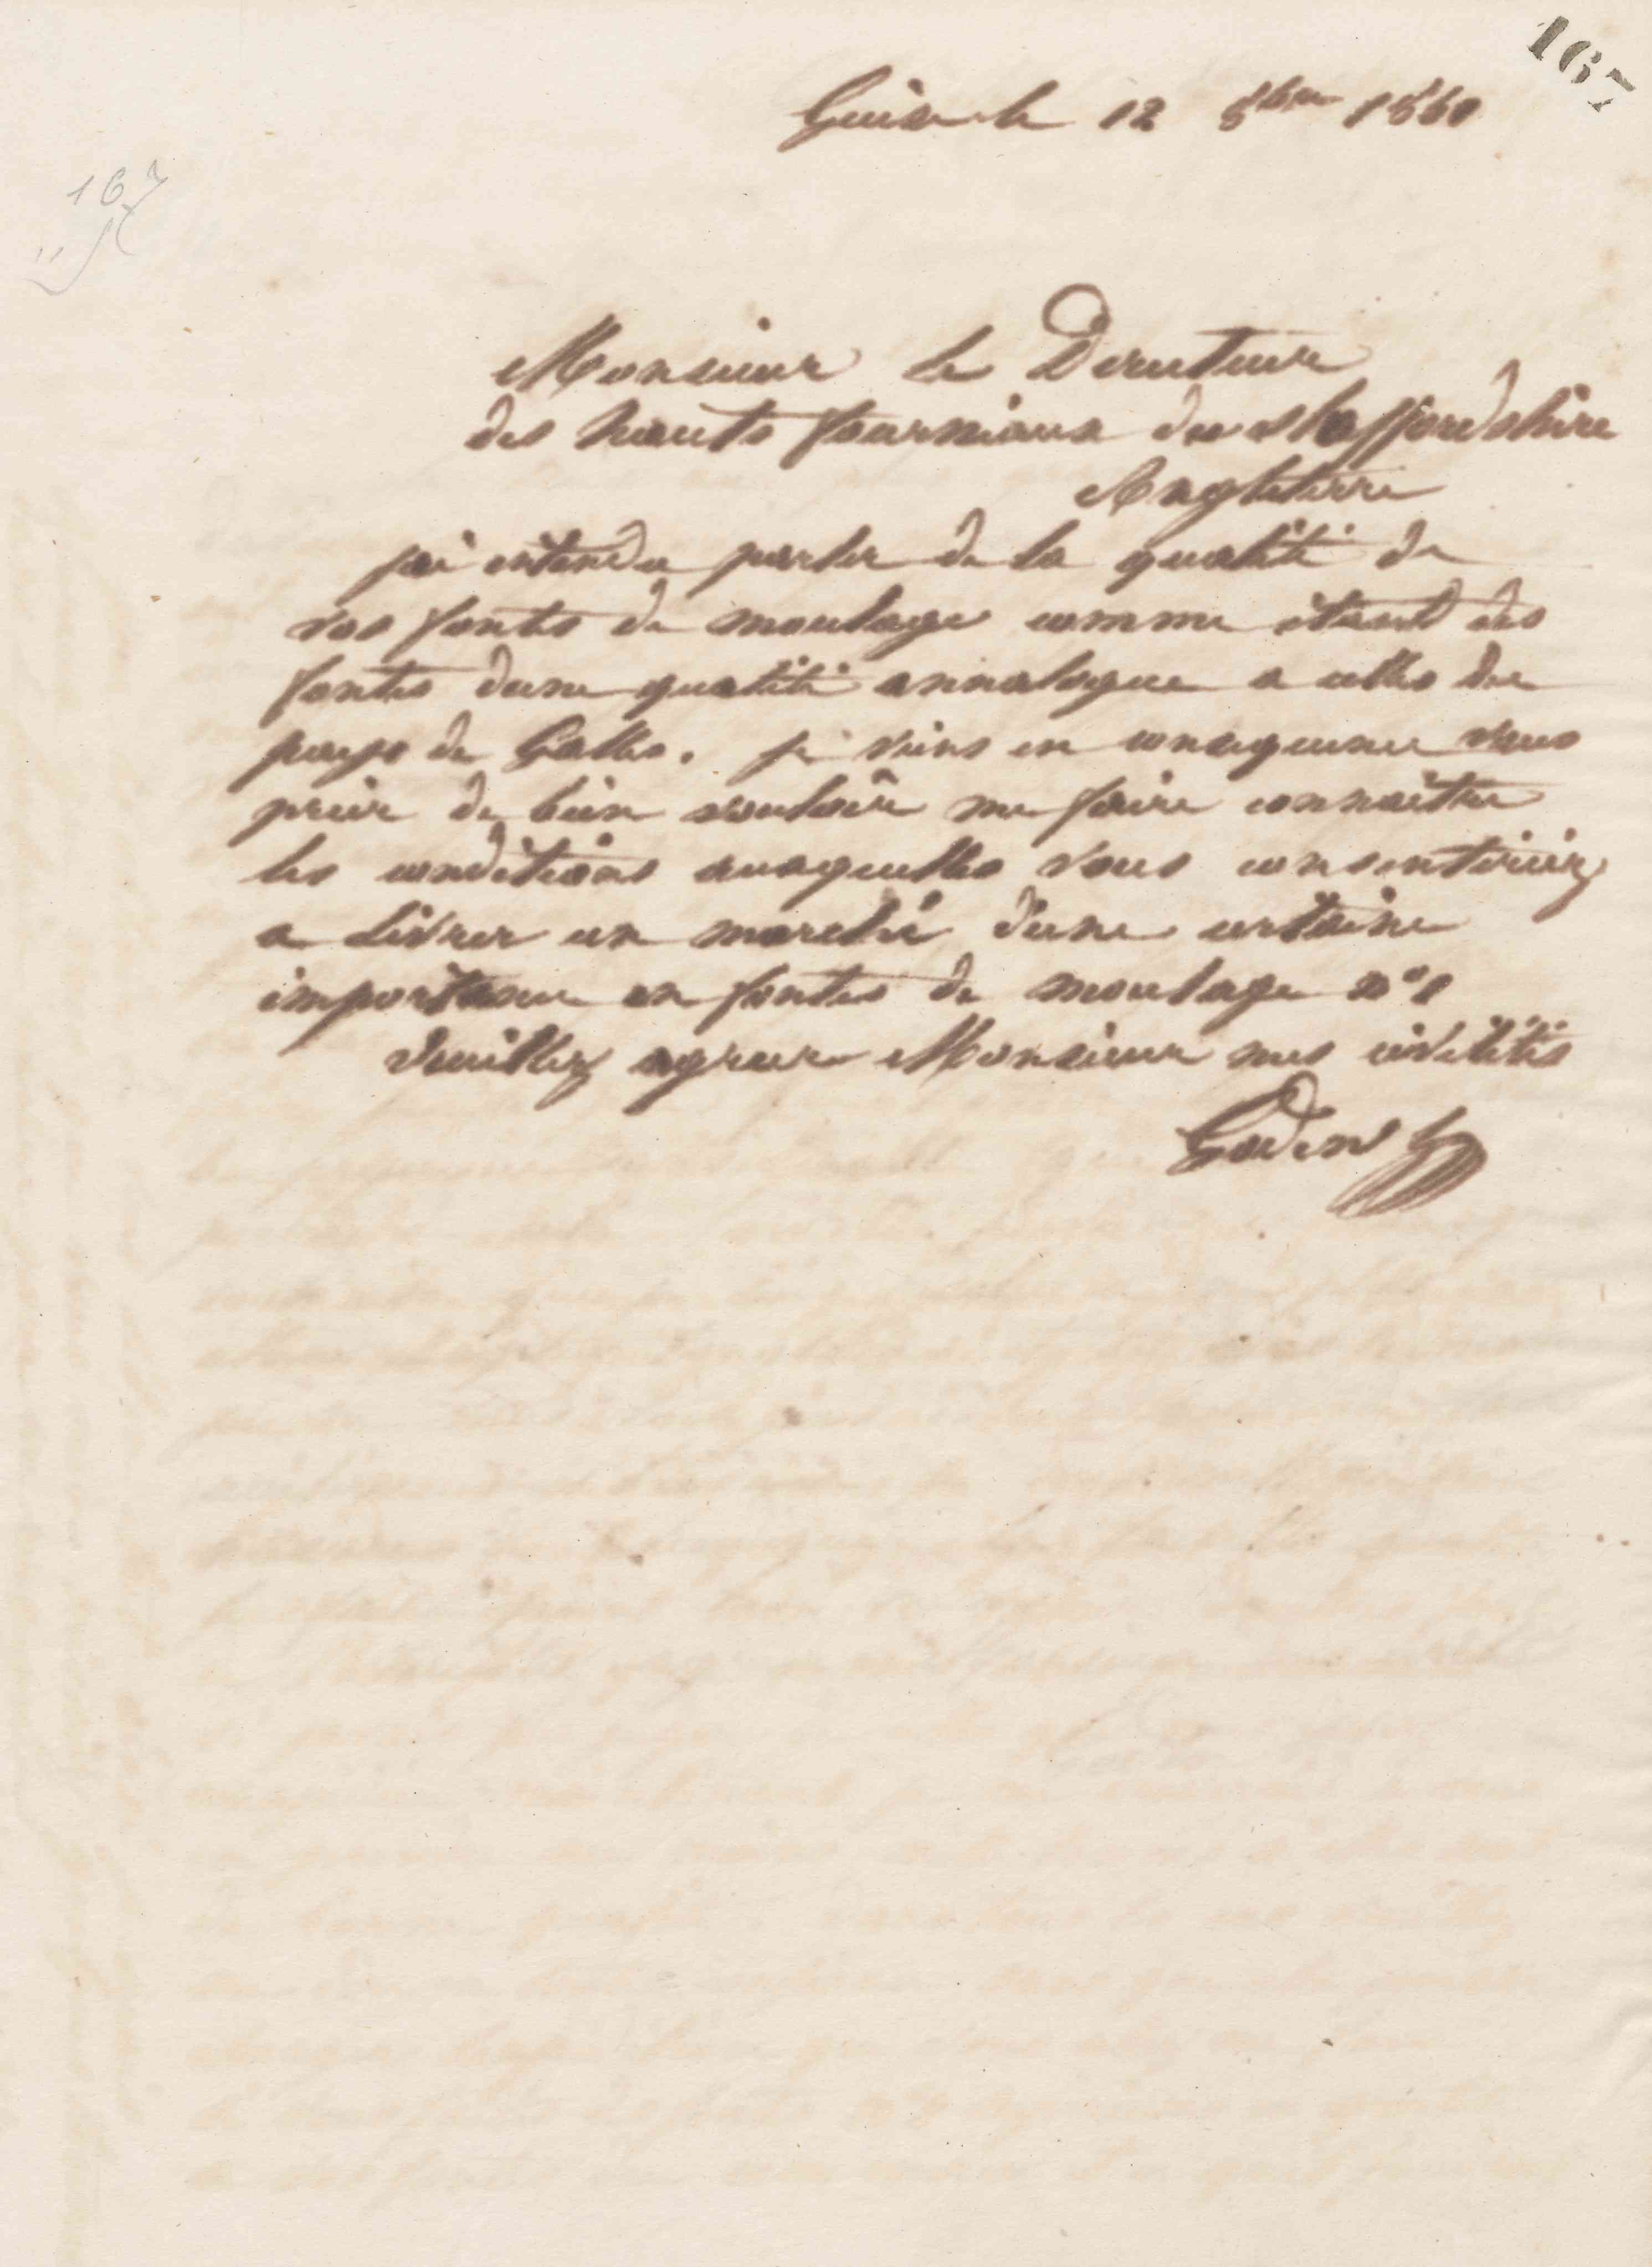 167
Guise le 12 8bre 1860
167
Monsieur le Directeur
des hauts fourniaux du staffordshire
Angleterre
jai entendu parler de la qualité de
vos fontes de moulage comme étant des
fontes dune qualité annalogue a celles du
pays de Galles. je viens en consequence vous
prier de bien vouloir me faire connaitre
les conditions auxquelles vous consentiriez
a livrer un marché d'une certaine
importance en fontes de moulage n° 1
Veuillez agreer Monsieur mes civilités
Godin